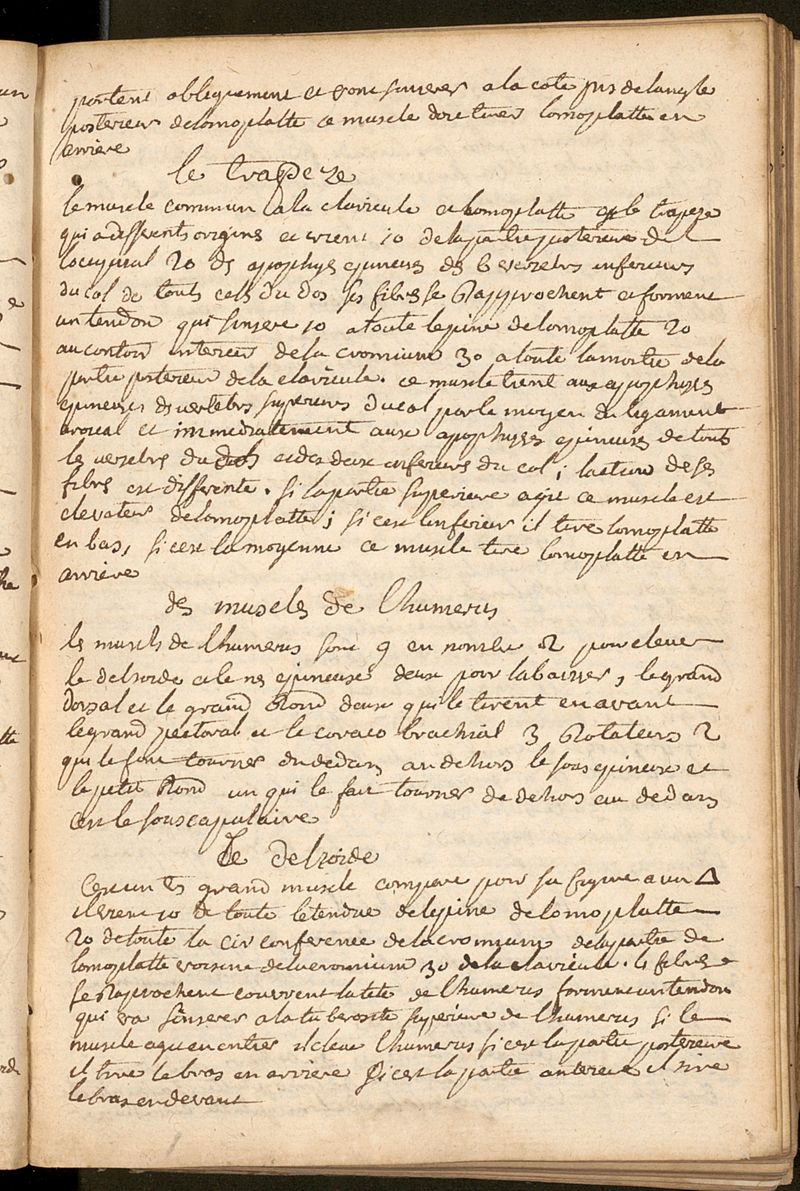 portent obliquement et vont sinserer a la cote pres de langle
posterieur de lomoplatte ce muscle doit tirer lomoplatte en
arriere
le trapeze
le muscle commun a la clavicule et lomoplatte est le trapeze
qui a differents origines et vient 1o de la partie posterieure de l
loccipital 2o des apophyses epineuses des 6 vertebres inferieures
du col de touts cels du dos ses fibres se Rapprochent et forment
un tendon qui sinsere 1o a toute lepine de lomoplatte 2o
au contour interieur de lacromium 3o a toute la moitie de la
partie posterieur de la clavicule. ce muscle tient aux apophyses
epineuses des vertebres superieures du col par le moyen du ligament
et immediatement aux apophyses epineuses de touts
les vertebres du dos et des deux inferieurs du col ; laction de ses
fibres est differente. si la partie superieure agit ce muscle est
elevateur de lomoplatte ; si cest linferieur il tire lomoplatte
en bas, si cest la moyenne ce muscle tire lomoplatte en
arriere
des muscles de lhumerus
les muscles de lhumerus sont 9 en nombre 2 pour elever
le deltoide et le epineuse deux pour labaisser, le grand
dorsal et le grand Rond deux qui le tirent en avant
le grand pectoral et le coraco brachial 3 Rotateurs 2
qui le font tourner du dedans au dehors le sous epineuse et
le petit Rond un qui le fait tourner de dehors au dedans
cest le souscapulaire
Le deltoide
Cest un tres grand muscle compare pour sa figure a un Δ
il vient 1o de toute letendue de lepine de lomoplatte
2o de toute la circonference de lacromium de la partie de
lomoplatte voisine de lacromium 3o de la clavicule. les fibres
se Raprochent couvrent la tete de lhumerus forment un tendon
qui va sinserer a la tuberosite superieure de lhumerus si le
muscle agit en entier il eleve lhumerus si cest la partie posterieure
il tire le bras en arriere si cest la partie anterieure il tire
le bras en devant